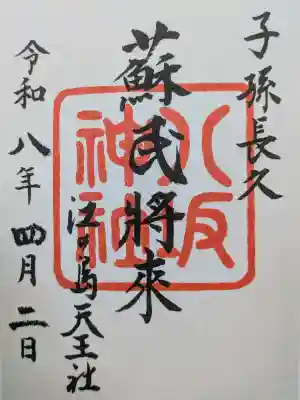 子孫長久
蘇民將來
八坂
神社
江ノ島天王社
令和八年四月二日